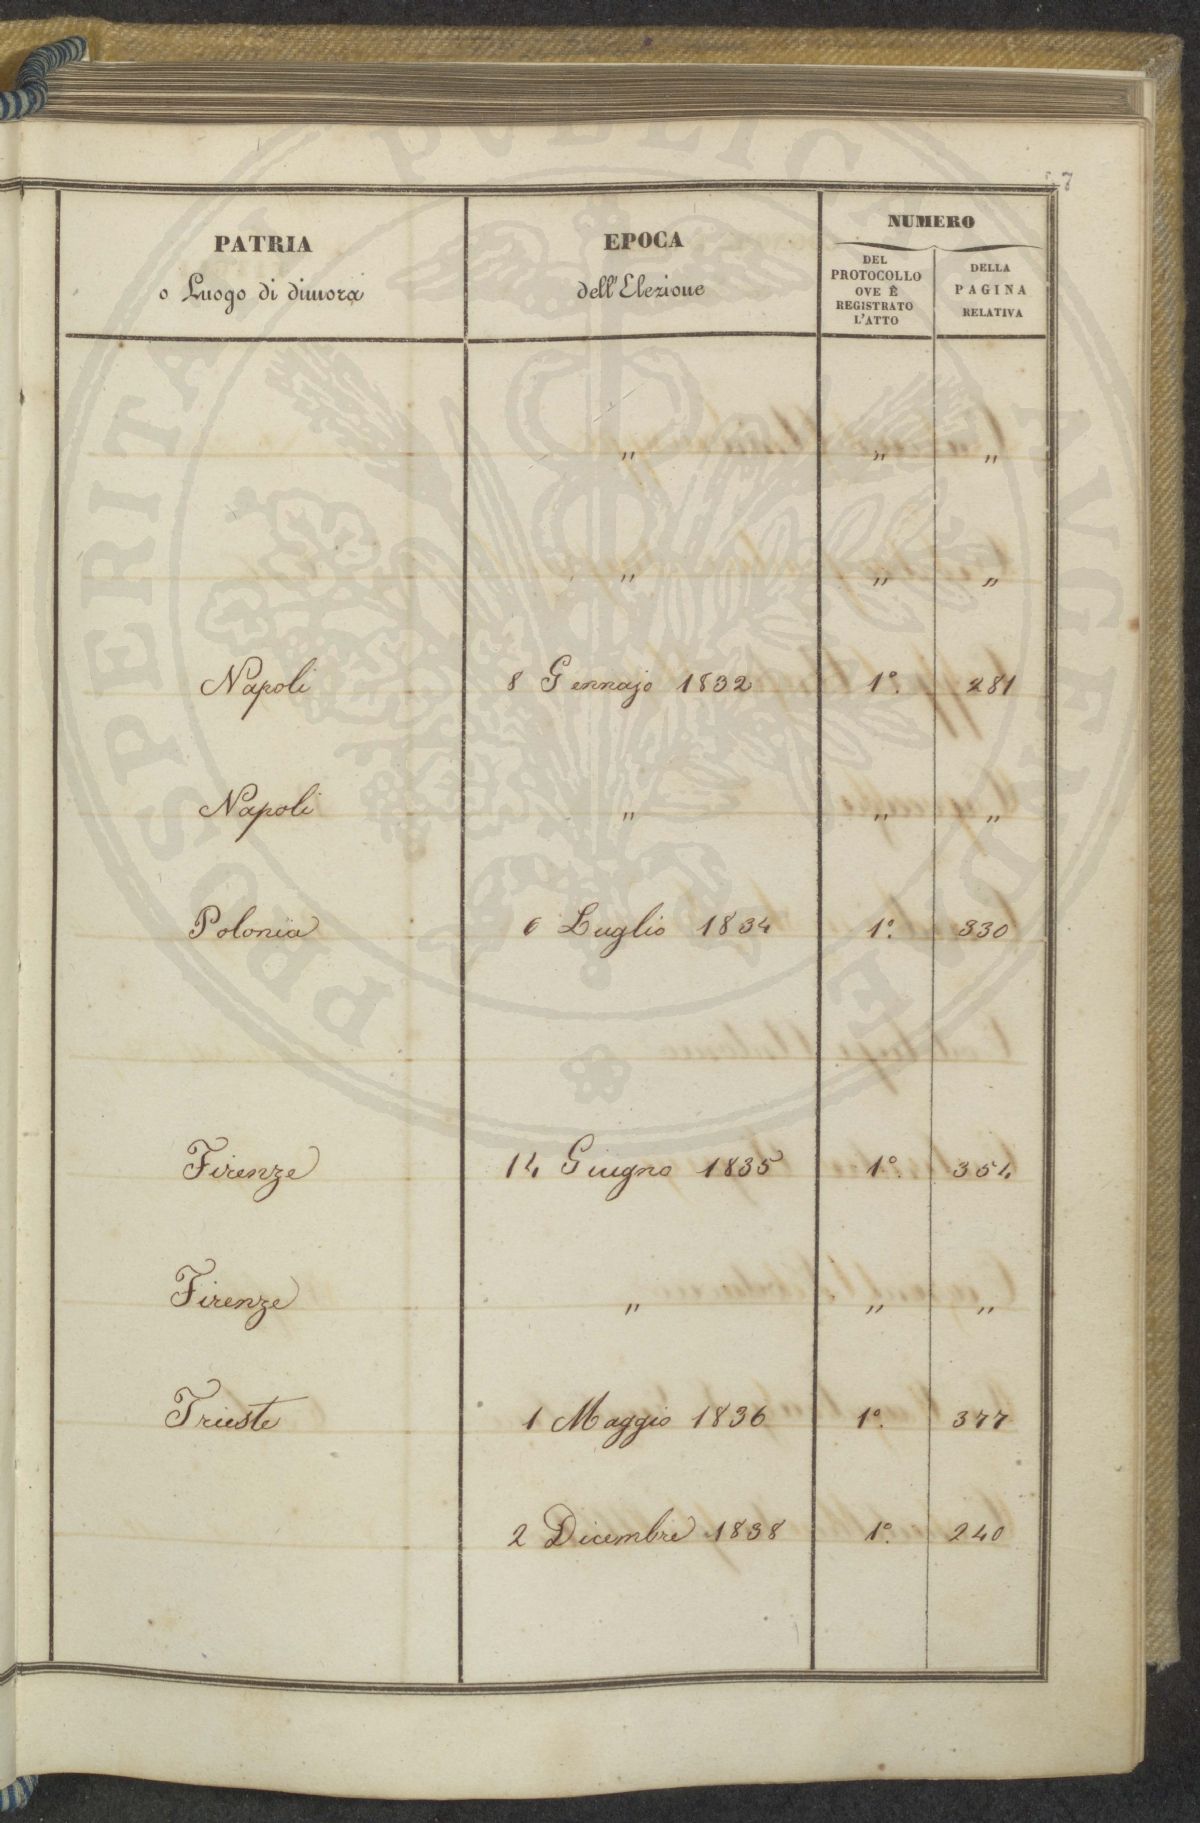 57
PATRIA
o Luogo di dimora
EPOCA
dell'Elezione
NUMERO
DEL
PROTOCOLLO
OVE È
REGISTRATO
L'ATTO
DELLA
PAGINA
RELATIVA
" " "
" " "
Napoli 8 Gennajo 1832 1º. 281
Napoli " " "
Polonia 6 Luglio 1834 1º. 330
Firenze 14 Giugno 1835 1º. 354
Firenze " " "
Trieste 1 Maggio 1836 1º. 377
2 Dicembre 1838 1º. 240
PROSPERITATI PUBLICAE AUGENDAE